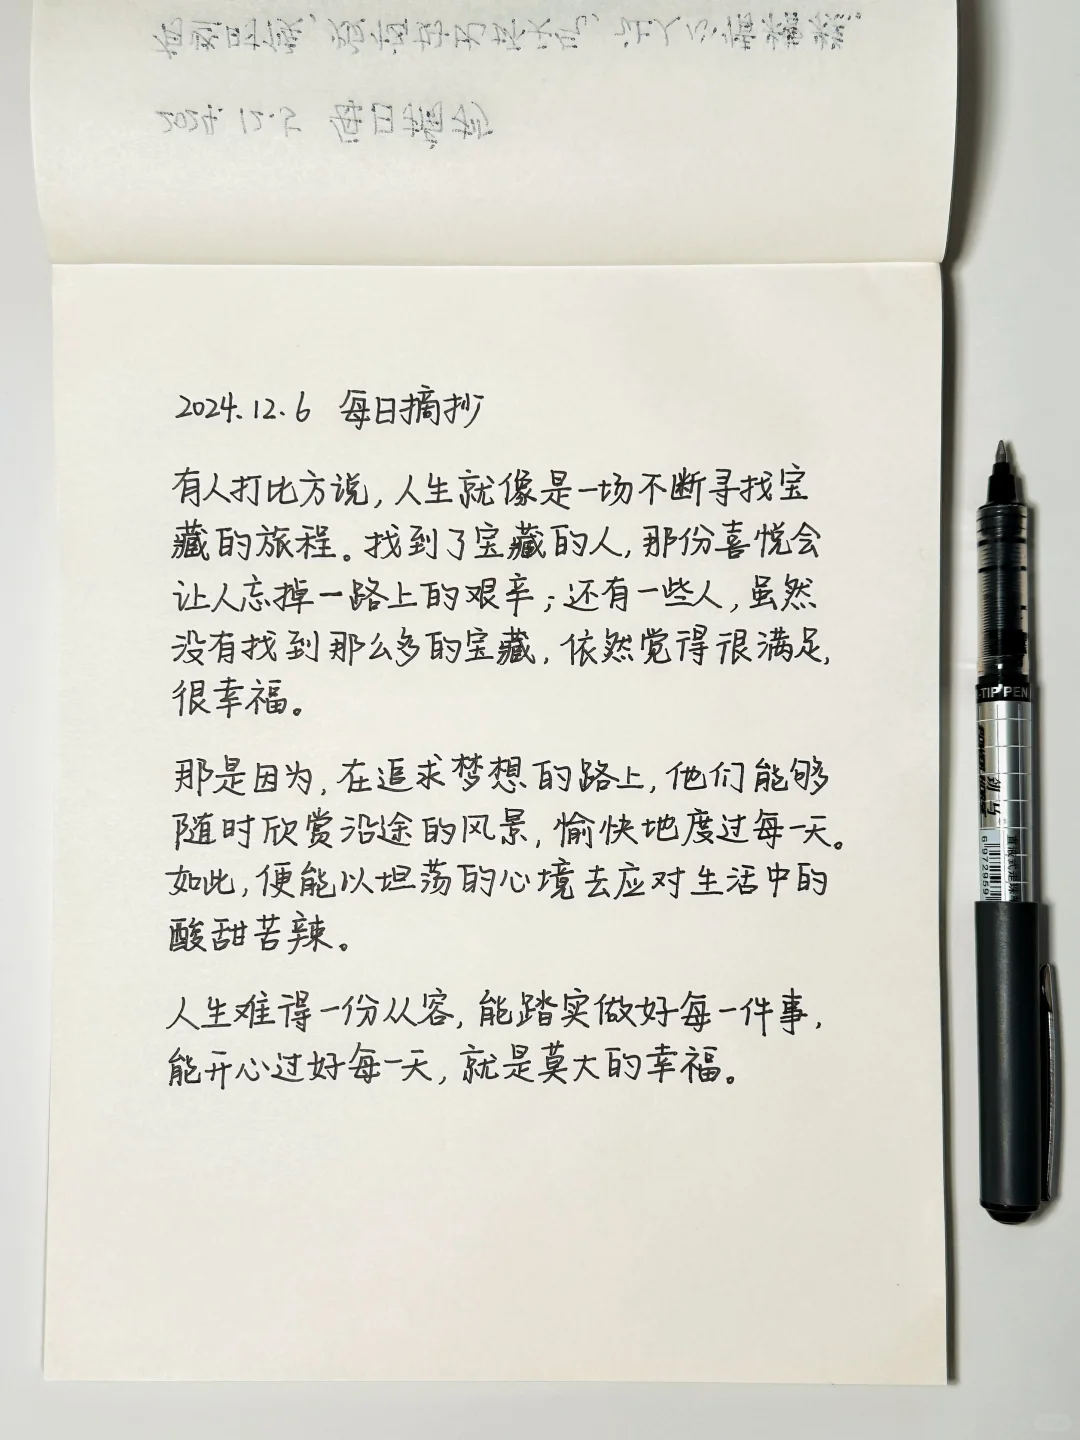 2024.12.5 每日摘抄
2024.12.6 每日摘抄
有人打比方说，人生就像是一场不断寻找宝
藏的旅程。找到了宝藏的人，那份喜悦会
让人忘掉一路上的艰辛；还有一些人，虽然
没有找到那么多的宝藏，依然觉得很满足，
很幸福。
那是因为，在追求梦想的路上，他们能够
随时欣赏沿途的风景，愉快地度过每一天。
如此，便能以坦荡的心境去应对生活中的
酸甜苦辣。
人生难得一份从容，能踏实做好每一件事，
能开心过好每一天，就是莫大的幸福。
-TIP PEN